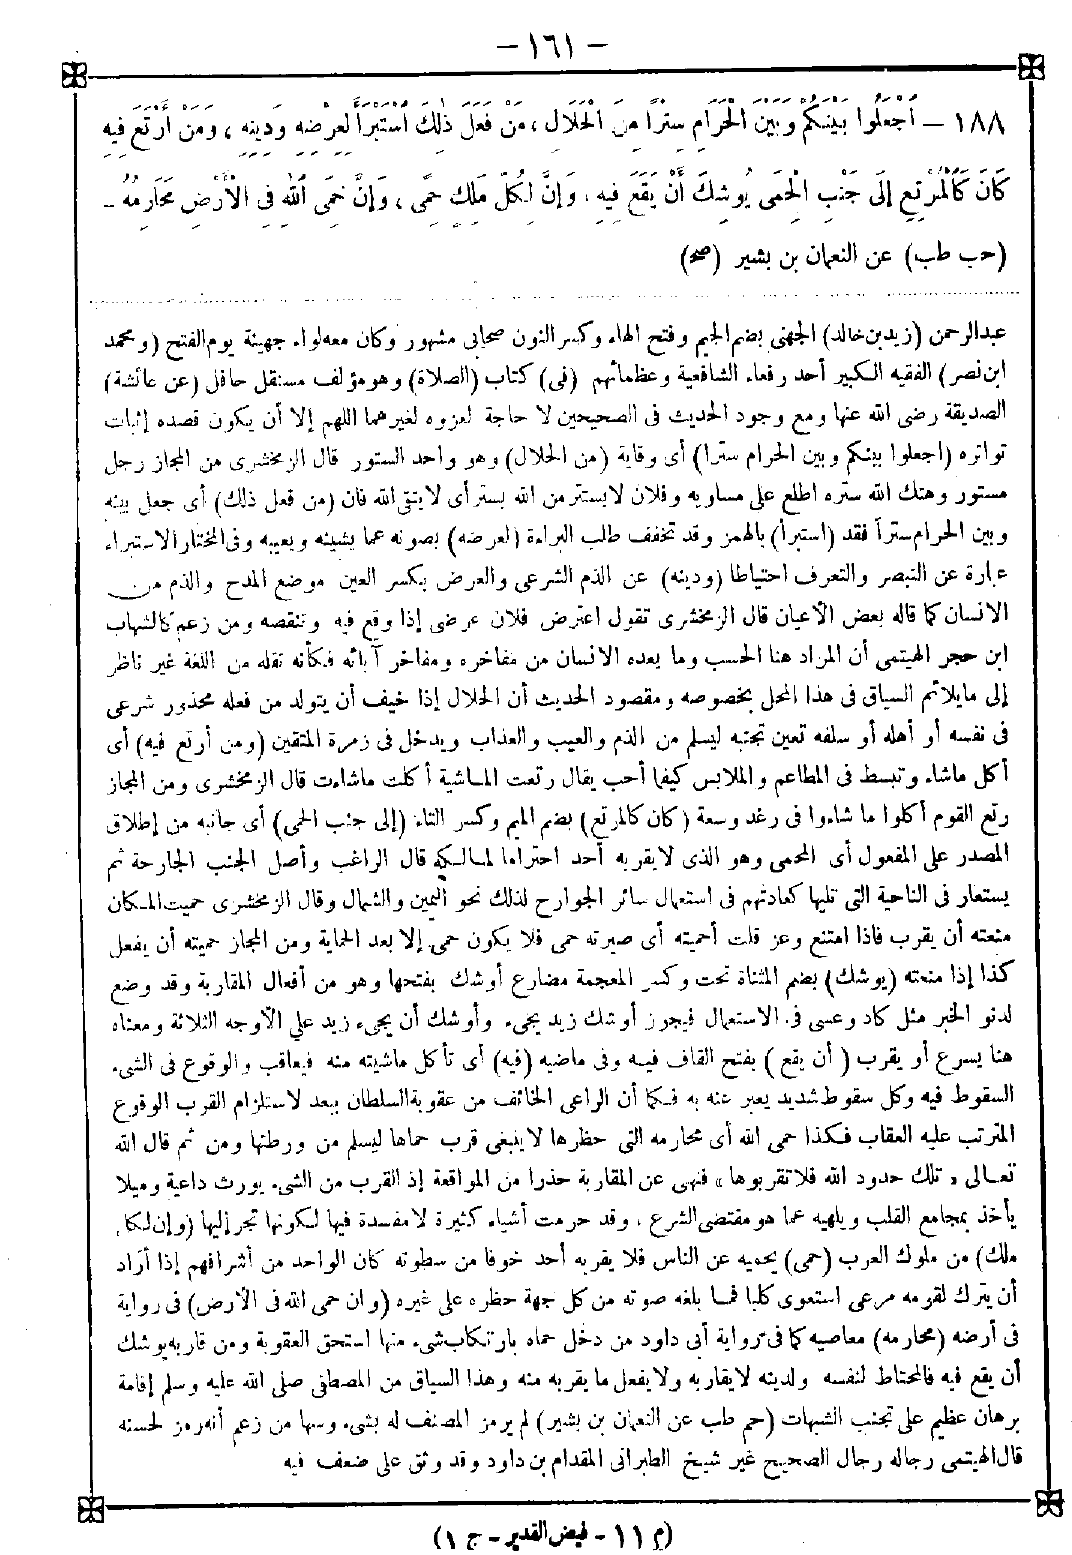 – ١٦١ –
١٨٨ – اَجْعَلُوا بَيْنَكُمْ وَبَيْنَ الْحَرَامِ سِتْرًا مِنَ الْحَلَالِ ، مَنْ فَعَلَ ذٰلِكَ اَسْتَبْرَأَ لِعِرْضِهِ وَدِينِهِ ، وَمَنْ أَرْتَعَ فِيهِ
كَانَ كَالْمُرْتِعِ إِلَى جَنْبِ الْحِمَى يُوشِكُ أَنْ يَقَعَ فِيهِ ، وَإِنَّ لِكُلِّ مَلِكٍ حِمًى ، وَإِنَّ حِمَى اللهِ فِى الْأَرْضِ مَحَارِمُهُ –
(حب طب) عن النعمان بن بشير (صح)
عبدالرحمن (زيدبن خالد) الجهنى بضم الجيم وفتح الهاء وكسر النون صحابى مشهور وكان معه لواء جهينة يوم الفتح (ومحمد
ابن نصر) الفقيه الكبير أحد رفعاء الشافعية وعظمائهم (فى) كتاب (الصلاة) وهو مؤلف مستقل حافل (عن عائشة)
الصديقة رضى الله عنها ومع وجود الحديث فى الصحيحين لا حاجة لعزوه لغيرهما اللهم إلا أن يكون قصده إثبات
تواتره (اجعلوا بينكم وبين الحرام سترا) أى وقاية (من الحلال) وهو واحد الستور قال الزمخشرى من المجاز رجل
مستور وهتك الله ستره اطلع على مساويه وفلان لا يستتر من الله بستر أى لا يتقى الله فان (من فعل ذلك) أى جعل بينه
وبين الحرام ستراً فقد (استبرأ) بالهمز وقد تخفف طلب البراءة (لعرضه) بصونه عما يشينه ويعيبه وفى المختار الاستبراء
عبارة عن التبصر والتعرف احتياطا (ودينه) عن الذم الشرعى والعرض بكسر العين موضع المدح والذم من
الانسان كما قاله بعض الأعيان قال الزمخشرى تقول اعترض فلان عرضى إذا وقع فيه وتنقصه ومن زعم كالشهاب
ابن حجر الهيتمى أن المراد هنا الحسب وما يعده الانسان من مفاخره ومفاخر آبائه فكأنه نقله من اللغة غير ناظر
إلى ما يلائم السياق فى هذا المحل بخصوصه ومقصود الحديث أن الحلال إذا خيف أن يتولد من فعله محذور شرعى
فى نفسه أو أهله أو سلفه تعين تجنبه ليسلم من الذم والعيب والعذاب ويدخل فى زمرة المتقين (ومن أرتع فيه) أى
أكل ماشاء وتبسط فى المطاعم والملابس كيفا أحب يقال رتعت الماشية أكلت ماشاءت قال الزمخشرى ومن المجاز
رتع القوم أكلوا ما شاءوا فى رغد وسعة (كان كالمرتع) بضم الميم وكسر التاء (إلى جنب الحمى) أى جانبه من إطلاق
المصدر على المفعول أى المحمى وهو الذى لا يقربه أحد احتراما لمالكه قال الراغب وأصل الجنب الجارحة ثم
يستعار فى الناحية التى تليها كعادتهم فى استعمال سائر الجوارح لذلك نحو اليمين والشمال وقال الزمخشرى حميت المكان
منعته أن يقرب فاذا امتنع وعز قلت أحميته أى صيرته حمى فلا يكون حمى إلا بعد الحماية ومن المجاز حميته أن يفعل
كذا إذا منعته (يوشك) بضم المثناة تحت وكسر المعجمة مضارع أوشك بفتحها وهو من أفعال المقاربة وقد وضع
لدنو الخبر مثل كاد وعسى فى الاستعمال فيجوز أوشك زيد يجىء وأوشك أن يجىء زيد على الأوجه الثلاثة ومعناه
هنا يسرع أو يقرب ( أن يقع ) بفتح القاف فيه وفى ماضيه (فيه) أى تأكل ماشيته منه فيعاقب والوقوع فى الشىء
السقوط فيه وكل سقوط شديد يعبر عنه به فكما أن الراعى الخائف من عقوبة السلطان يبعد لاستلزام القرب الوقوع
المترتب عليه العقاب فكذا حمى الله أى محارمه التى حظرها لا ينبغى قرب حماها ليسلم من ورطتها ومن ثم قال الله
تعالى « تلك حدود الله فلا تقربوها » فنهى عن المقاربة حذرا من المواقعة إذ القرب من الشىء يورث داعية وميلا
يأخذ بمجامع القلب ويلهيه عما هو مقتضى الشرع ، وقد حرمت أشياء كثيرة لا مفسدة فيها لكونها تجر إليها (وإن لكل
ملك) من ملوك العرب (حمى) يحميه عن الناس فلا يقربه أحد خوفا من سطوته كان الواحد من أشرافهم إذا أراد
أن يترك لقومه مرعى استعوى كلبا فما بلغه صوته من كل جهة حظره على غيره (وان حمى الله فى الأرض) فى رواية
فى أرضه (محارمه) معاصيه كما فى رواية أبى داود من دخل حماه بارتكاب شىء منها استحق العقوبة ومن قاربه يوشك
أن يقع فيه فالمحتاط لنفسه ولدينه لا يقاربه ولا يفعل ما يقربه منه وهذا السياق من المصطفى صلى الله عليه وسلم إقامة
برهان عظيم على تجنب الشبهات (حم طب عن النعمان بن بشير) لم يرمز المصنف له بشىء وسها من زعم أنه رمز لحسنه
قال الهيتمى رجاله رجال الصحيح غير شيخ الطبرانى المقدام بن داود وقد وثق على ضعف فيه
(م ١١ – فيض القدير – ج ١)